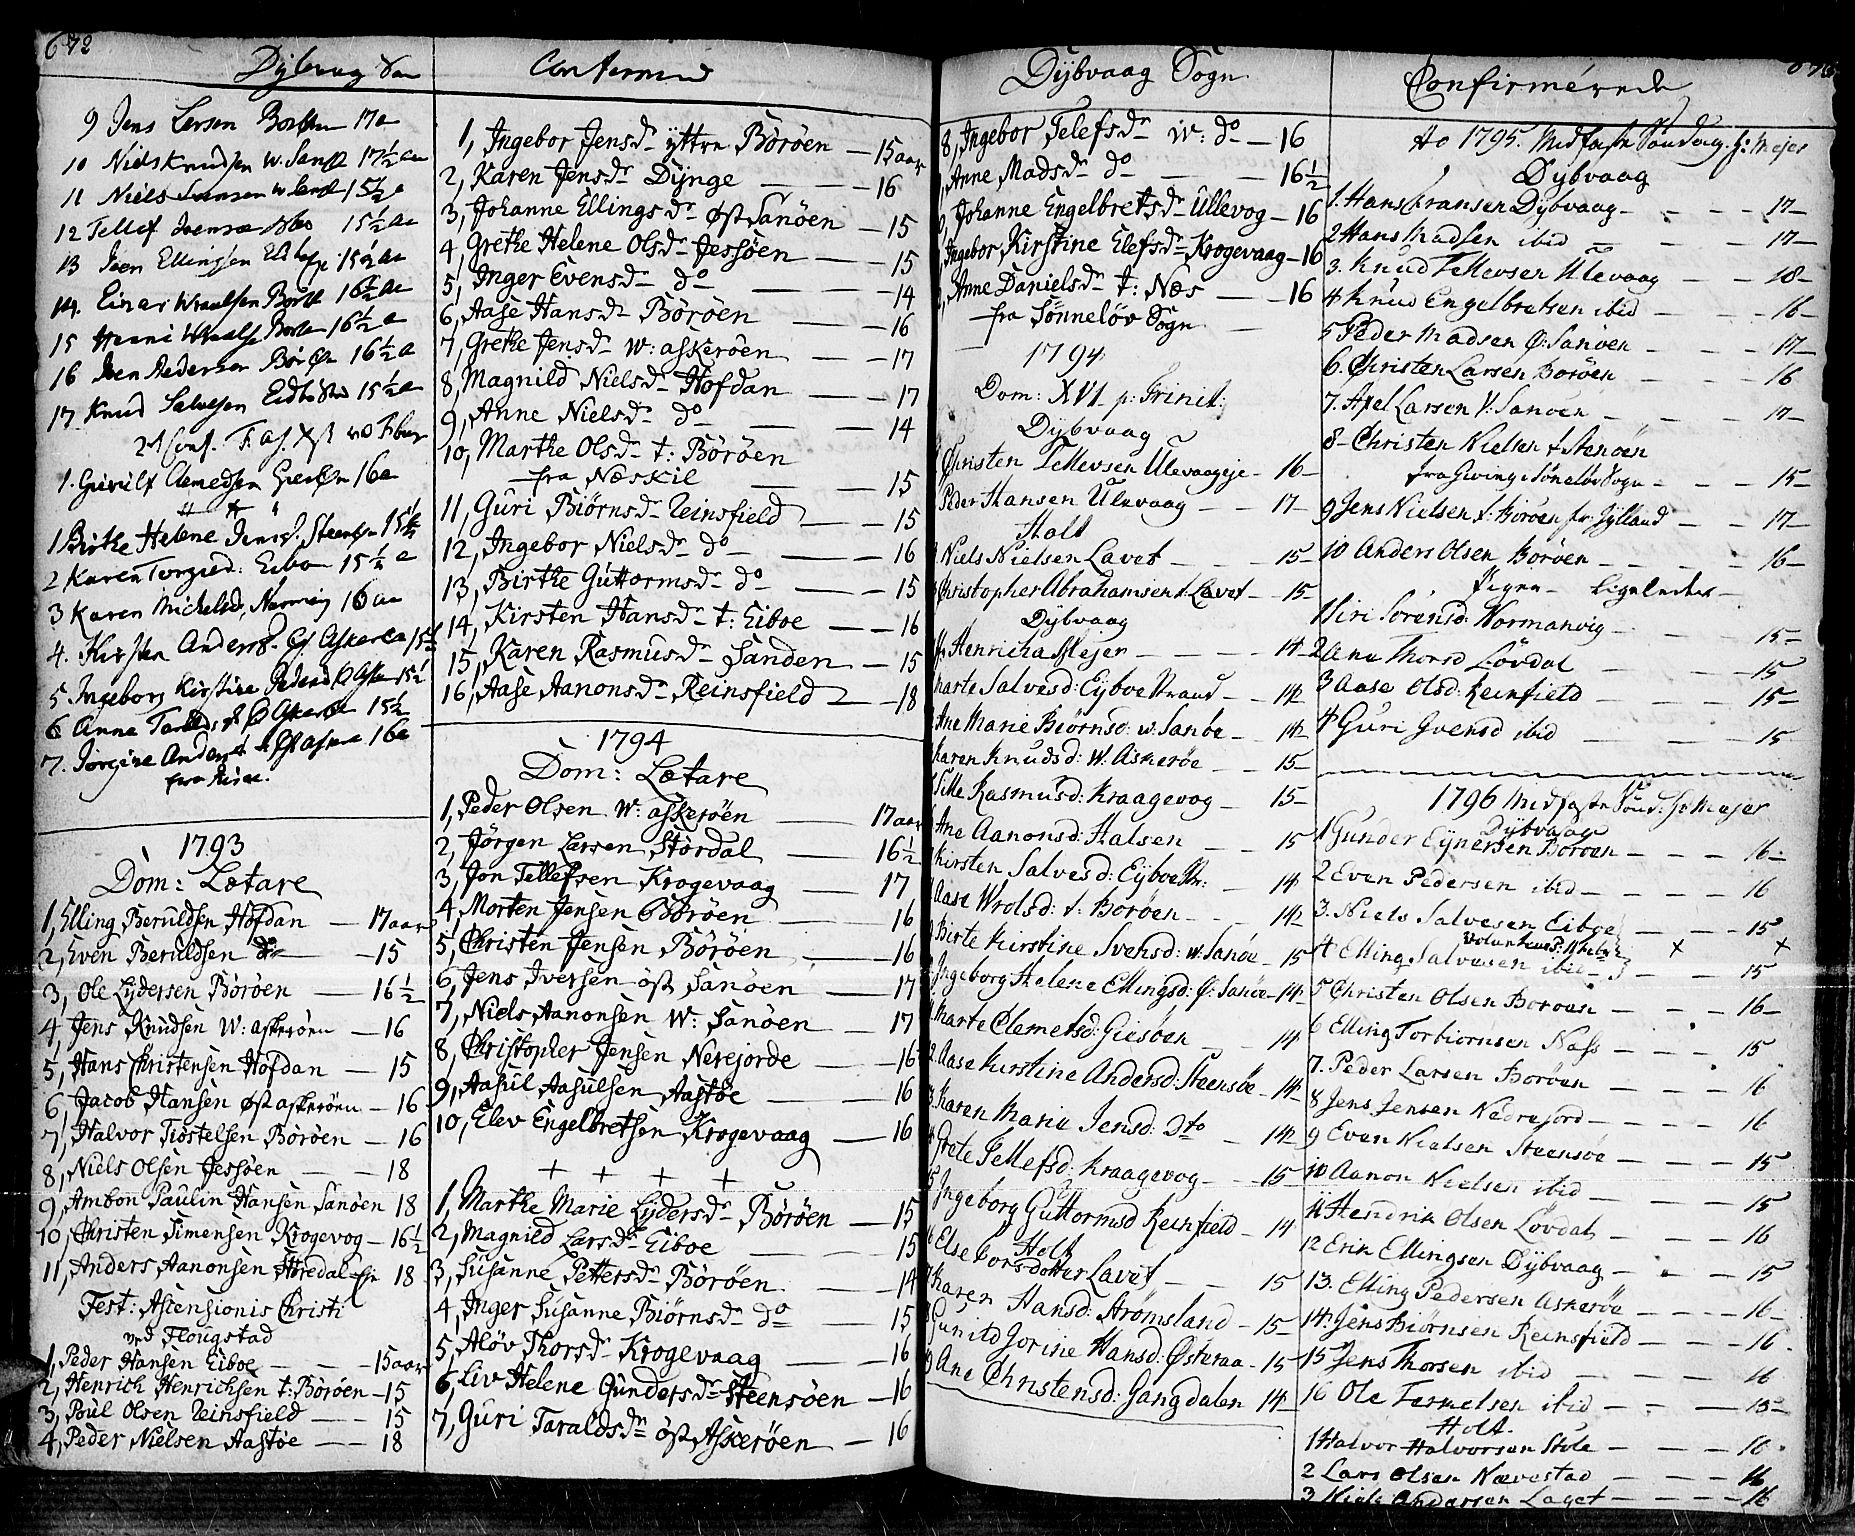 672
Dybvaag Sogn
Confirmered
9 Jens Larsen Borøen 17 a
10 Niels Knudsen W. Sanøe 17½ aar
11 Niels Svensen w Sanøe 15½ a
12 Tellef Ivensen 15½ aa
13 Iven Ellingsen 15½ aa
14. Einar Wraalsen Borøe 16½ aa
15 Henni Wraalss Borøe 16½ a
16 Iven Pedersen Børøn 16½ a
17 Knud Salvesen Eidboe 15½ a
1. Clemedsen Giesøen 16 a
1 Birthe Helene Jensd. Steensøe 15½
2 Karen Torgusd: Eiboe 15½ a
3 Karen Michelsd. Narmvig 16 aa
4. Kirsten Andersd. Askerøe 15½
5. Ingeborg Kirstine Pedersd Aske 15½
6 Anna Askerøe 15½
7. Jørgine Andersd 16 a
1793
Dom: Lætare
1, Elling Beruldsen Hofdan — 17 aar
2, Even Beruldsen do — 15
3, Ole Lydersen Böröen — 16½
4, Jens Knudsen W: askeröen — 16
5, Hans Christensen Hofdan — 15
6, Jacob Hansen öst askeröen — 16
7, Halvor Tiöstelsen Böröen — 16
8, Niels Olsen Jessöen — — 18
9, Ambon Paulin Hansen Sanöen 18
10, Christen Simensen Krogevog — 16½
11, Anders Aanonsen Störedal eje 18
Fest: Ascensionis Christi
ved Flougstad
1, Peder Hansen Eiboe — — 15 aar
2, Henrich Henrichsen t: Böröen — 15
3, Poul Olsen Reinsfield — — 15
4, Peder Nielsen Aastöe — — 18
1, Ingebor Jensdr ÿttre Börøen — 15 aar
2, Karen Jensdr Dÿnge — — — 16
3, Johanne Ellingsdr öst Sanöen — 15
4, Grethe Helene Olsdr Jessöen — 15
5, Inger Evensdr do — — — 14
6, Aase Hansdr Börøen — — 16
7, Grethe Jensdr W: askeröen — — 17
8, Magnild Nielsdr Hofdan — — 17
9, Anne Nielsdr do — — 14
10, Marthe Olsdr t: Börøen
fra Næskil — — 15
11, Guri Biörnsdr Reinsfield — — 15
12, Ingebor Nielsdr do — — 16
13, Birthe Guttormsdr do — — 15
14, Kirsten Hansdr t: Eiboe — — 16
15, Karen Rasmusdr Sanden — 15
16, Aase Aanonsdr Reinsfield — 18
1794
Dom: Lætare
1, Peder Olsen W: askeröen — — 17 aar
2, Jörgen Larsen Stordal — — 16½
3, Jon Tellefsen Krogevaag — — 17
4, Morten Jensen Börøen — — 16
5, Christen Jensen Börøen — — 16
6, Jens Iversen öst Sanöen — — 17
7, Niels Aanonsen W: Sanöen — — 17
8, Christopher Jensen Nerejorde — — 16
9, Aasul Aasulsen Aastöe — — 16
10, Elev Engelbretsen Krogevaag — 16
+ + + +
1, Marthe Marie Lÿdersdr Börøen — 15
2, Magnild Larsdr Eiboe — — 15
3, Susanne Pettersdr Börøen — — 14
4, Inger Susanne Biörnsdr do — — 15
5, Alöv Thorsdr Krogevaag — — 16
6, Liv Helene Gundersdr Steensöen — 16
7, Guri Taraldsdr öst Askeröen — 16
Dÿbvaag Sogn
Confirmérede
8, Ingebor Telefsdr W: do — 16
Anne Madsdr do — — 16½
Johanne Engelbretsdr Ullevog — 16
Ingebor Kirstine Elefsdr Krogevaag — 16
Anne Danielsdr t: Næs — — 16
fra Sönnelöv Sogn —
1794
Dom: XVI p: Trinit:
Dybvaag
Christen Tellevsen Ulevaageje — 16 —
Peder Hansen Ulevaag — — 17 —
Holt
Niels Nielsen Lavet — — 15 —
Christopher Abrahamsen t. Lavet — 15 —
Dybvaag
Henricha Mejer — — — 14 —
Marte Salvesd: Eyboe Strand — 14
Ane Marie Biörnsd: w: Sanöe — 14
Karen Knudsd: W. Askeröe — — 15 —
Sille Rasmusd: Kraagevog — 15 —
Ane Aanonsd: Halsen — 15
Kirsten Salvesd: Eyboe Str: — 14
Aase Wrolsd: t. Boröen — — 14
Birte Kirstine Svensd: w. Sanöe — 15
Ingeborg Helene Ellingsd: Ø: Sanöe — 14
Marte Clemetsd: Giesöen — 14
Aase Kirstine Andersd: Steensöe — 14
Karen Maria Jensd: Dto — 14
Grete Tellefsd: Kraagevog — — 15 —
Ingeborg Guttormsd Reinfield — 14
Holt
Else Corsdotter Lavet — — 15
Karen Hansd: Strömsland — 15 —
Gunild Jorine Hansd: Østeraa — 15
Ane Christensd: Gangdalen — 14
Ao 1795. Midfaste Söndag. H: Mejer
Dybvaag
1. Hans Cransen Dybvaag — — — 17 —
2 Hans Madsen ibid — — — 17 —
3. Knud Tellevsen Ulevaag — — 18 —
4 Knud Engelbretsen ibid — — 16 —
5 Peder Madsen Ø: Sanöen — — 17 —
6. Christen Larsen Boröen — — 16
7. Axel Larsen V: Sanöen — — 17 —
8 Christen Nielsen t Stensöen
fra Gieving i Sönelöv Sogn — — 15 —
9 Jens Nielsen t. Boröen fr: Jylland — — 17 —
10 Anders Olsen Boröen — — 16 —
Pigen — Ligeledes —
1 Siri Sörensd: Normanvig — — 15 —
2 Ane Thorsd Lövdal — — 15
3 Aase Olsd: Reinfield — — 15 —
4 Guri Svensd ibid — — 15
1796 Midfaste Sönd: Hr Mejer
Dybvaag
1 Gunder Eynersen Boröen — — 16 —
2 Even Pedersen ibid — — — 16
3. Niels Salvesen Eiboe — — 15
4 Elling Salvesen ibid — — 15
5 Christen Olsen Boröen — — 16 —
6 Elling Torbiornsen Næss — — 15
7. Peder Larsen Boröen — — 16
8 Jens Jensen Nedrejord — — 16
9 Even Nielsen Steensöe — — 15
10 Aanon Nielsen ibid — — 15
11 Hendrik Olsen Lövdal — — 16
12 Erik Ellingsen Dÿbvaag — — 15
13. Elling Pedersen Askeröe — — 16 —
14. Jens Biörnsen Reinsfield — — 16
15 Jens Thorsen ibid — — — 16
16 Ole Termelsen ibid — — 15 —
Holt.
1 Halvor Halvorsen Stöle — — 16
2 Lars Olsen Nævestad — — — 16
3 Niels Andersen Laget — — — 16